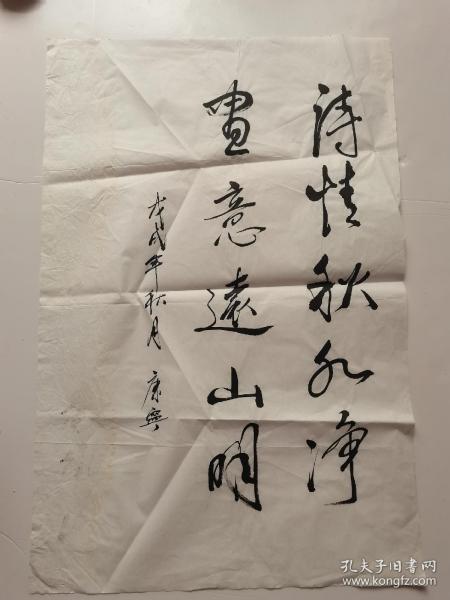 詩情秋水净
畫意遠山明
戊戌年秋月 康寧
孔夫子旧书网
www.kongfz.com